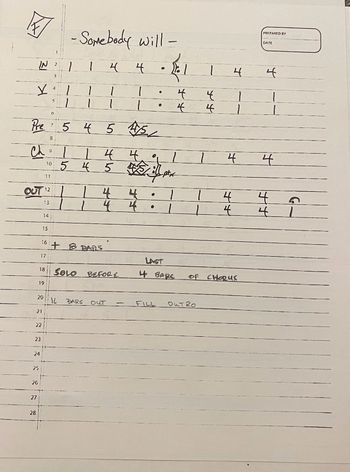 F
- Somebody Will -
PREPARED BY
DATE
1
2 IN 1 1 4 4 • 1 1 4 4
3
4 V 1 1 1 1 • 4 4 1 1
5 1 1 1 1 • 4 4 1 1
6
7 Pre 5 4 5 4 5
8
9 Ch 1 1 4 4 • 1 1 4 4
10 5 4 5 4 5
11
OUT 12 1 1 4 4 • 1 1 4 4
13 1 1 4 4 • 1 1 4 4 1
14
15
16 + 8 BARS
17 LAST
18 SOLO BEFORE 4 BARS OF CHORUS
19
20 16 BARS OUT - FILL OUTRO
21
22
23
24
25
26
27
28